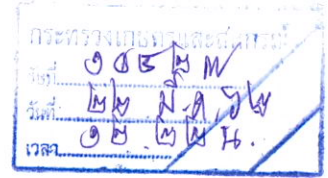 กระทรวงเกษตรและสหกรณ์
วันที่ ๒๒ มี.ค. ๖๒
เวลา ๑๒.๒๒ น.